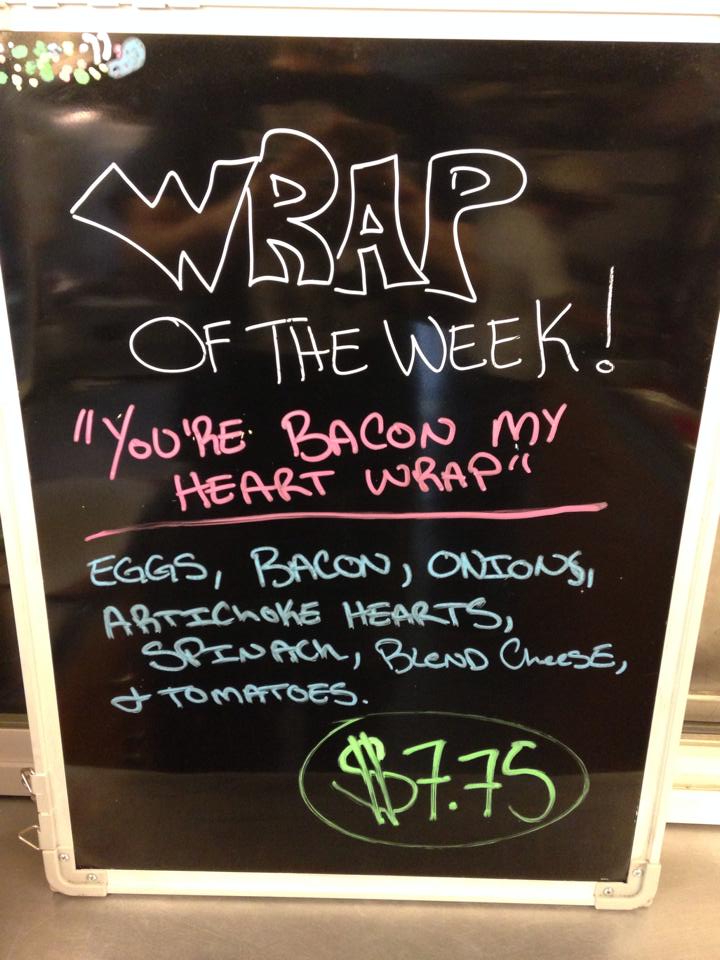 WRAP
OF THE WEEK!
"YOU'RE BACON MY
HEART WRAP"
EGGS, BACON, ONIONS,
ARTICHOKE HEARTS,
SPINACH, BLEND CHEESE,
& TOMATOES.
$7.75